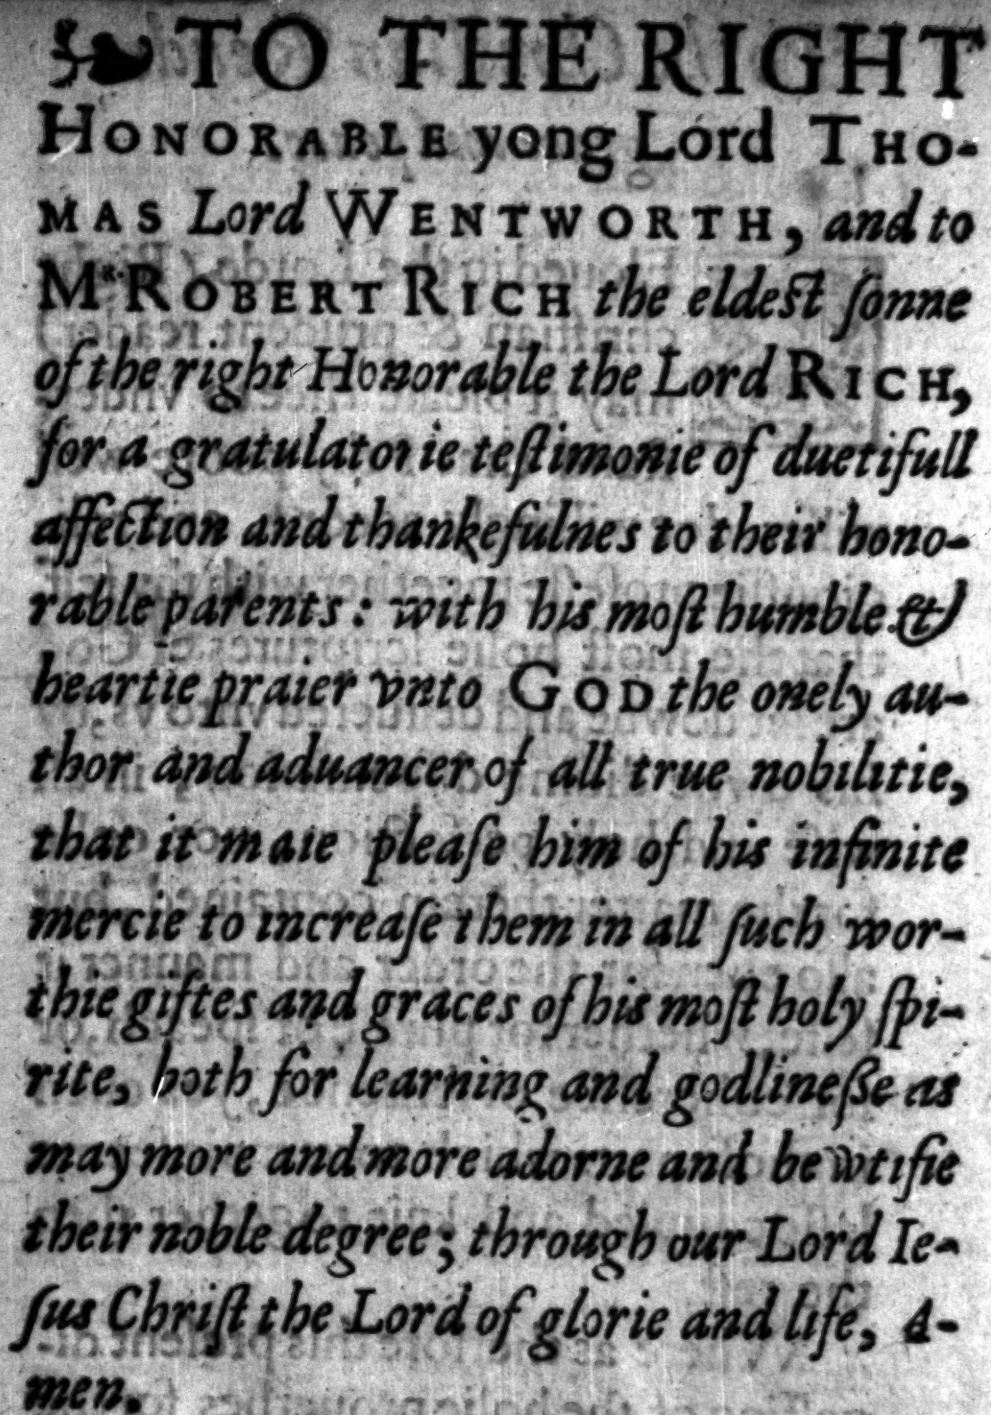 ❧ TO THE RIGHT
HONORABLE yong Lord THO-
MAS Lord WENTWORTH, and to
Mr. ROBERT RICH the eldest ſonne
of the right Honorable the Lord RICH,
for a gratulatorie teſtimonie of duetifull
affection and thankefulnes to their hono-
rable parents: with his moſt humble &
heartie praier vnto GOD the onely au-
thor and aduancer of all true nobilitie,
that it maie pleaſe him of his infinite
mercie to increaſe them in all ſuch wor-
thie giftes and graces of his moſt holy ſpi-
rite, both for learning and godlineſſe as
may more and more adorne and bewtifie
their noble degree; through our Lord Ie-
ſus Chriſt the Lord of glorie and life, A-
men.